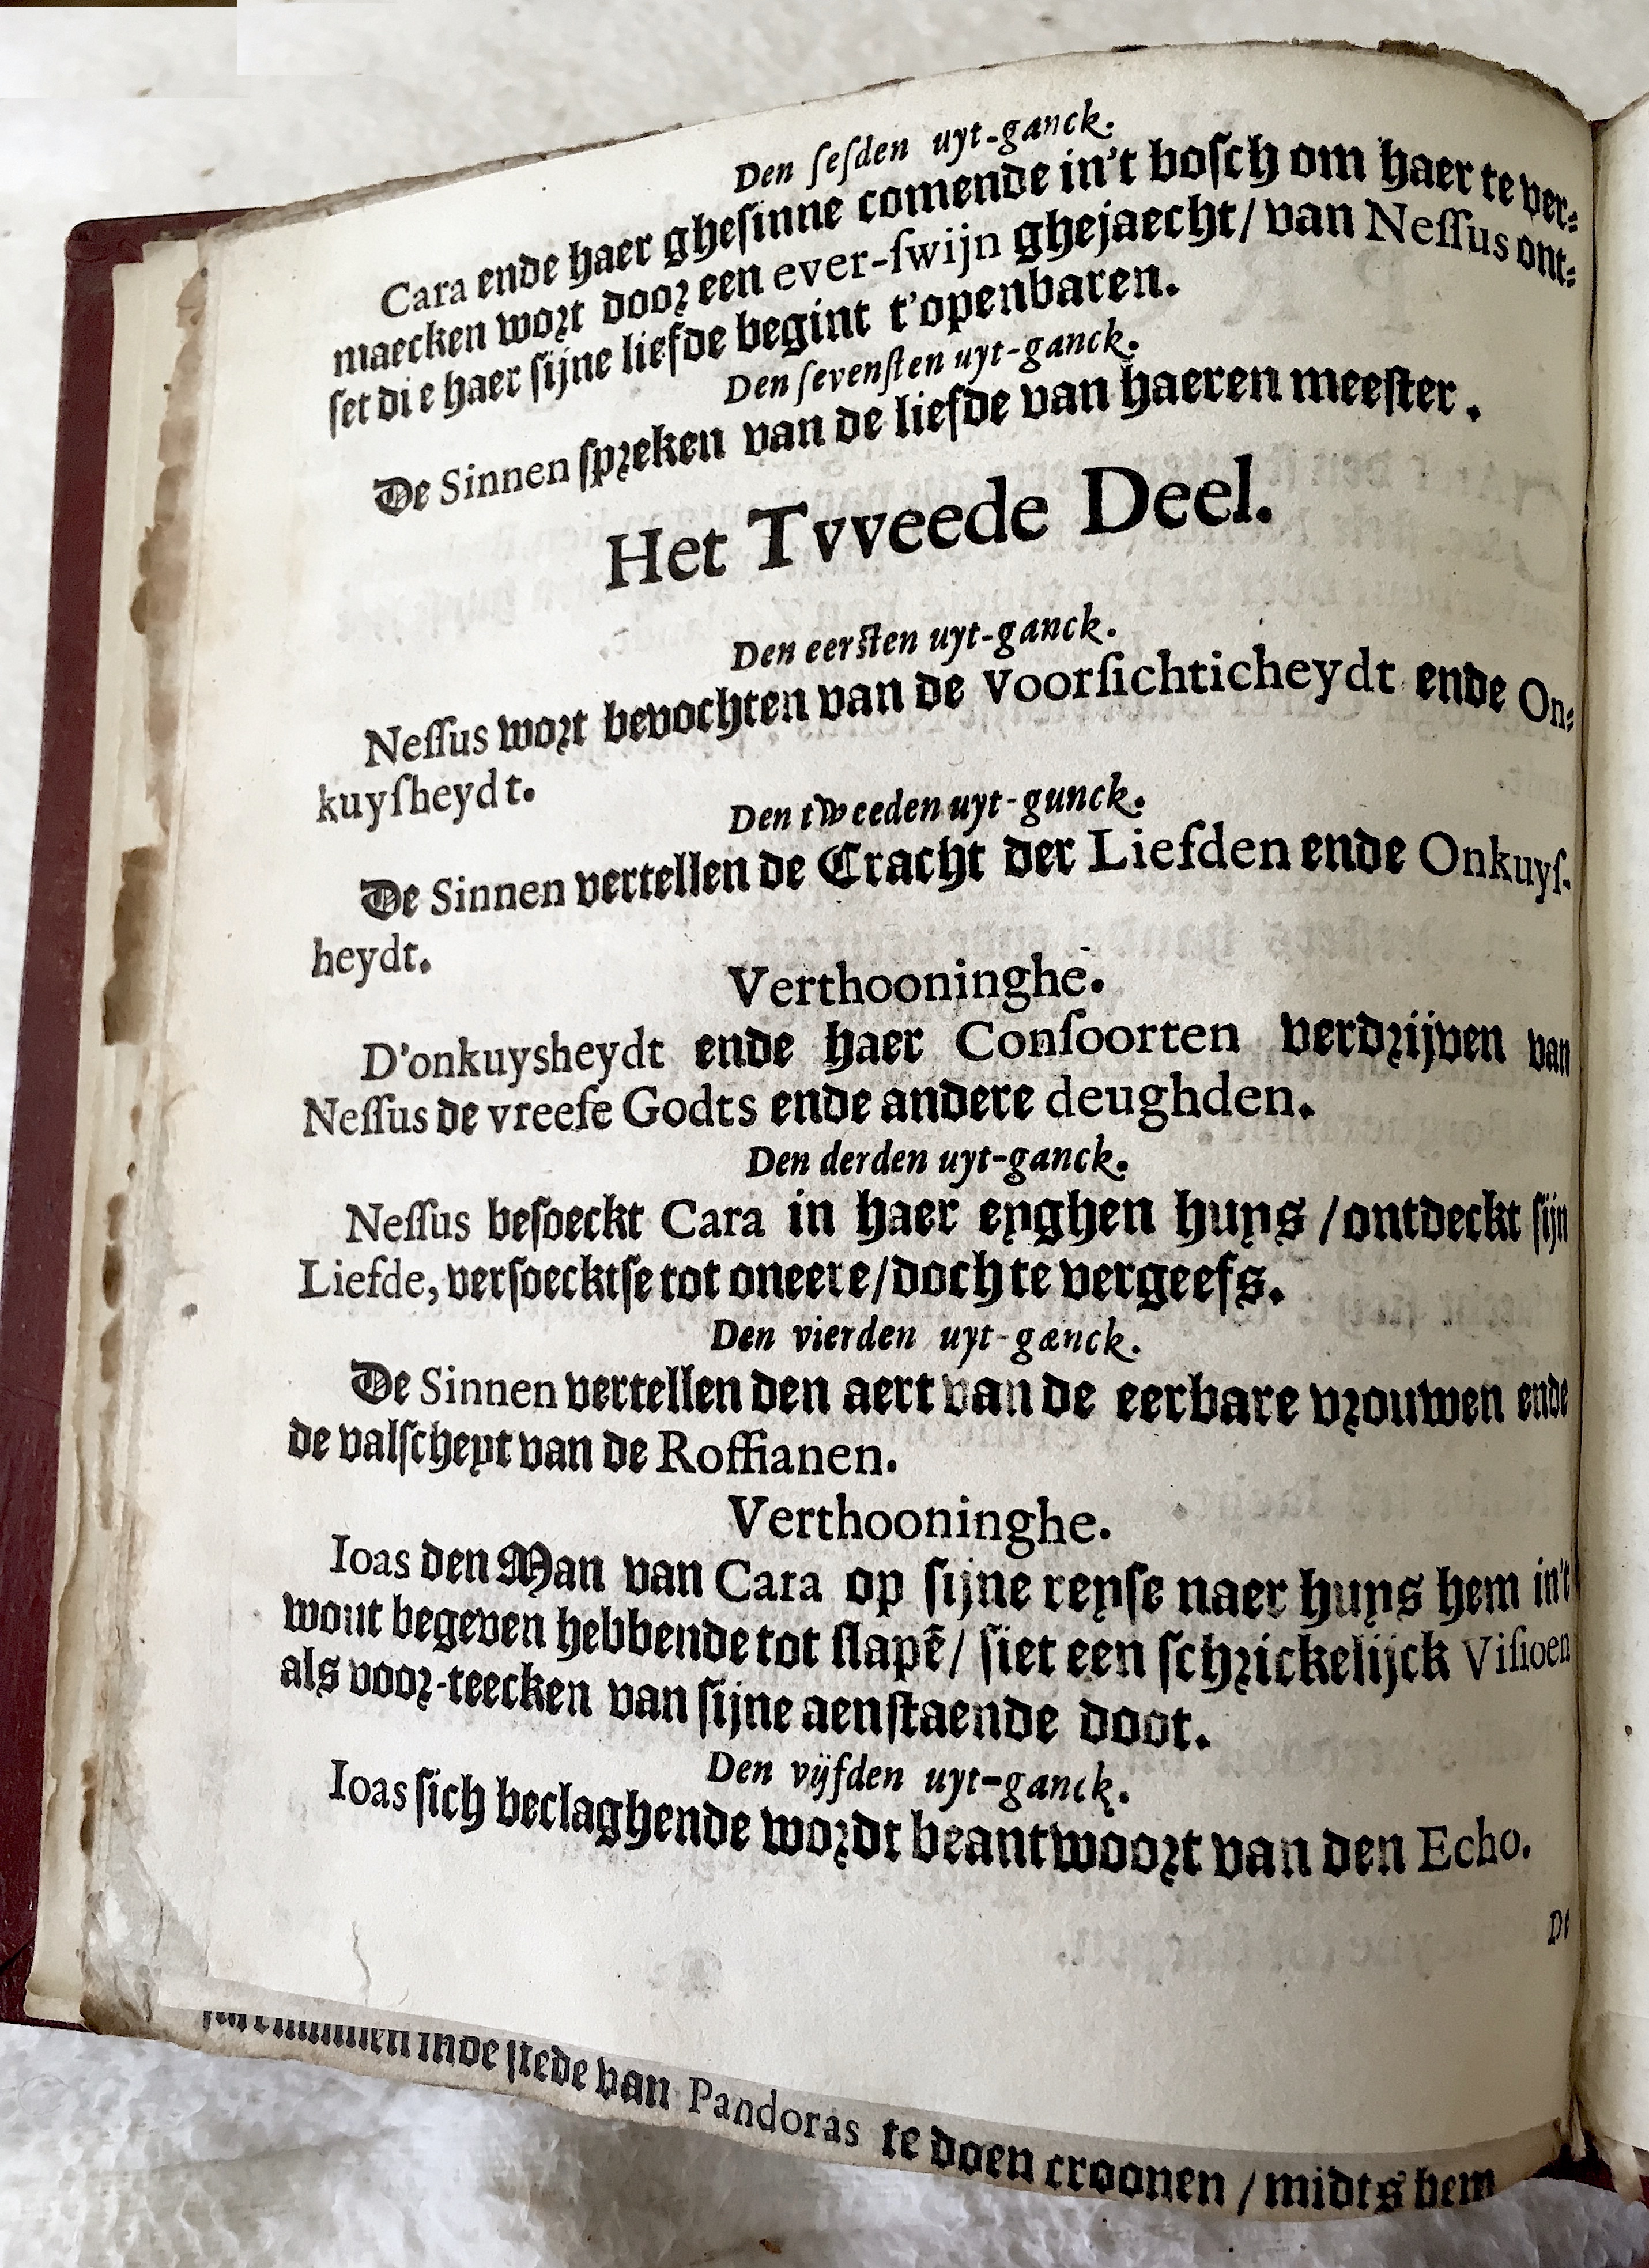 Den ſeſden uyt-ganck.
Cara ende haer gheſinne comende in't boſch om haer te ver-
maecken wort door een ever-ſwijn ghejaecht/ van Neſſus ont-
ſet die haer ſijne liefde begint t'openbaren.
Den ſevenſten uyt-ganck.
De Sinnen ſpreken van de liefde van haeren meeſter.
Het Tvveede Deel.
Den eerſten uyt-ganck.
Neſſus wort bevochten van de Voorſichticheydt ende On-
kuyſheydt.
Den tweeden uyt-gunck.
De Sinnen vertellen de Cracht der Liefden ende Onkuyſ-
heydt.
Verthooninghe.
D'onkuysheydt ende haer Conſoorten verdrijven van
Neſſus de vreeſe Godts ende andere deughden.
Den derden uyt-ganck.
Neſſus beſoeckt Cara in haer eyghen huys / ontdeckt ſijn
Liefde, verſoecktſe tot oneere/ doch te vergeefs.
Den vierden uyt-gænck.
De Sinnen vertellen den aert van de eerbare vrouwen ende
de valſcheyt van de Roffianen.
Verthooninghe.
Ioas den Man van Cara op ſijne reyſe naer huys hem in't
wout begeven hebbende tot ſlapē/ ſiet een ſchrickelijck Viſioen
als voor-teecken van ſijne aenſtaende doot.
Den vijfden uyt-ganck.
Ioas ſich beclaghende wordt beantwoort van den Echo.
De
inde ſtede van Pandoras te doen croonen / midts hem